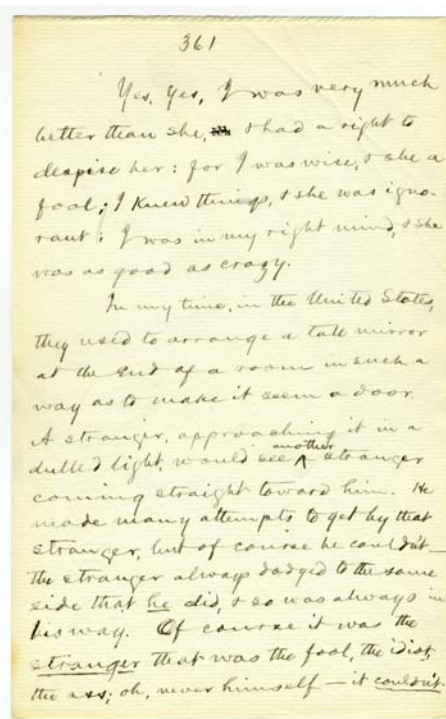 361
Yes, yes, I was very much
better than she, & had a right to
despise her: for I was wise, & she a
fool; I knew things, & she was igno-
rant; I was in my right mind, & she
was as good as crazy.
In my time, in the United States,
they used to arrange a tall mirror
at the end of a room in such a
way as to make it seem a door.
A stranger, approaching it in a
dulled light, would see another stranger
coming straight toward him. He
made many attempts to get by that
stranger, but of course he couldn't—
the stranger always dodged to the same
side that he did, & so was always in
his way. Of course it was the
stranger that was the fool, the idiot,
the ass; oh, never himself — it couldn't